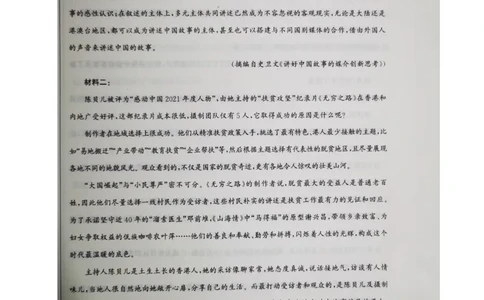 事的感性认识;在叙述的主体上,多元主体共同讲述已然成为不容忽视的客观现实,无论是大陆还是
港澳台地区,都可以成为讲述中国故事的主体,甚至也可以搭建与不同国别媒体的合作,借由外国人
的声音来讲述中国的故事。
(摘编自史卫文《讲好中国故事的媒介创新思考》)
材料二:
陈贝儿被评为“感动中国2021年度人物”,由她主持的“扶贫攻坚”纪录片《无穷之路》在香港和
内地广受好评,这部纪录片成本很低,摄制团队仅有5人,它取得成功的原因是什么呢?
制作者在地域选择上很成功。他们从精准扶贫政策入手,挑选了最有特色、港人最少接触的主题,比
如“易地搬迁”“产业带动”“教育扶贫”“企业帮扶”等,然后根据主题选择有代表性的脱贫地区,且尽量展现
各地不同的地貌风光。观众看到的,不仅是国家的脱贫奇迹,更有各地令人惊叹的壮美山河。
“大国崛起”与“小民尊严”密不可分。《无穷之路》的制作者说,脱贫最大的受益人是普通老百
姓,因此他们尽量选择一线村民作为受访者,这些村民朴实的讲述是扶贫工作最有力的见证和回应。
为了承诺坚守近40年的“溜索医生”邓前堆,《山海情》中“马得福”的原型谢兴昌,带领乡亲致富、为
妇女争取权益的佤族咖啡农叶萍……他们的善良和奉献、勤劳和拼搏,闪烁着人性的光辉,构成这个
时代最温暖的底色。
主持人陈贝儿是土生土长的香港人,她的采访像聊家常,她态度真诚,说话接地气,访谈有人情
味儿,当地人很自然地向她敞开心扉,分享自己的生活。而最打动受访者和观众的,是陈贝儿及摄制